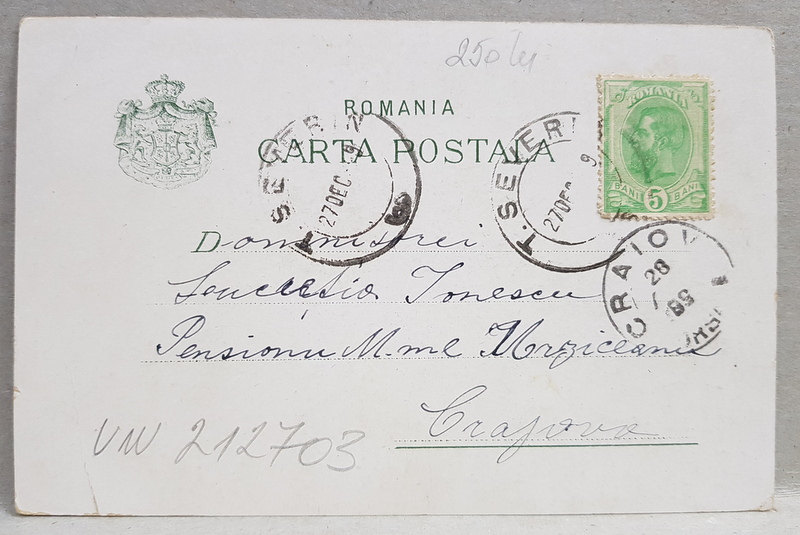 250 lei
ROMANIA
CARTA POSTALA
ROMANIA
BANI 5 BANI
T. SEVERIN
27 DEC 9
T. SEVERI
27 DEC 9
CRAIOV
28
99
Domnisoarei
Lucreția Ionescu
Pensionu M.me Urziceanu
Crajova
VW 212703